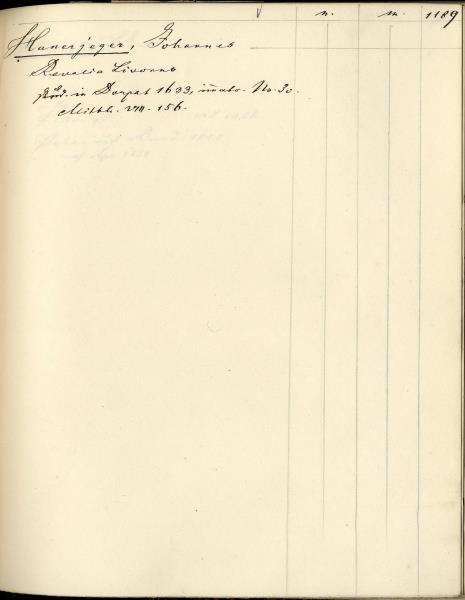 n. m. 1189
Hunerjeger, Johannes
Revalia Livonus
stud. in Dorpat 1633, immatr. No. 30.
Mitth. VIII. 156.